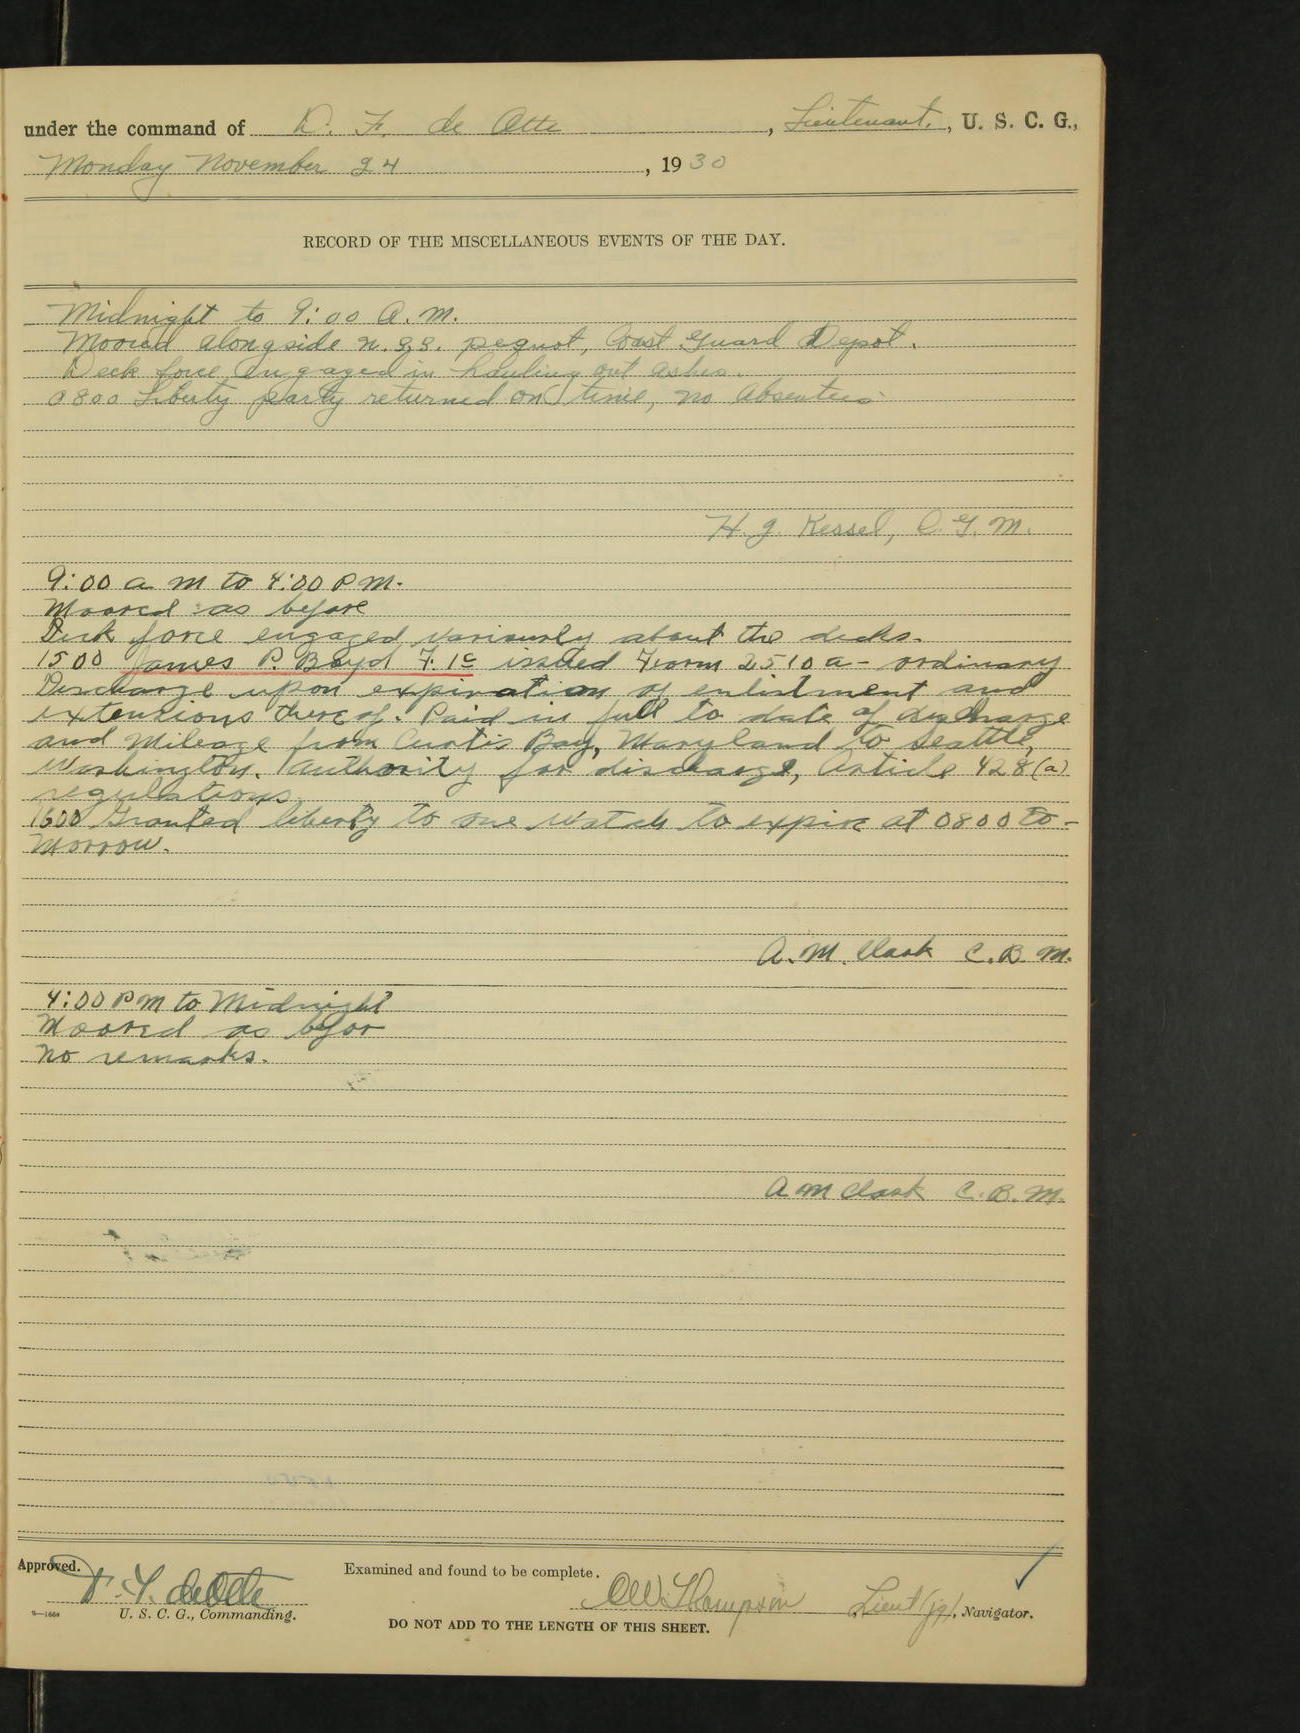 under the command of D. F. de Otte, Lieutenant, U. S. C. G.,
Monday November 24, 1930
RECORD OF THE MISCELLANEOUS EVENTS OF THE DAY.
Midnight to 9:00 A.M.
Moored alongside Pequot, Coast Guard Depot.
Deck force engaged in hauling out ashes.
0800 Liberty party returned on time, no Absentees.
H. J. Kessel, C.G.M.
9:00 a m to 4:00 P M.
Moored as before
Deck force engaged variously about the decks.
1500 James P. Boyd F. 1c issued Form 2510a - ordinary
Discharge upon expiration of enlistment and
extensions thereof. Paid in full to date of discharge
and Mileage from Curtis Bay, Maryland to Seattle,
Washington. Authority for discharge, Article 428(a)
regulations.
1600 Granted liberty to one watch to expire at 0800 to-
morrow.
A. M. Clark C. B. M.
4:00 PM to Midnight
Moored as befor
No remarks.
A M Clark C. B. M.
Approved.
Examined and found to be complete.
D. F. deOtte
U. S. C. G., Commanding.
Thompson Lieut (jg), Navigator.
DO NOT ADD TO THE LENGTH OF THIS SHEET.